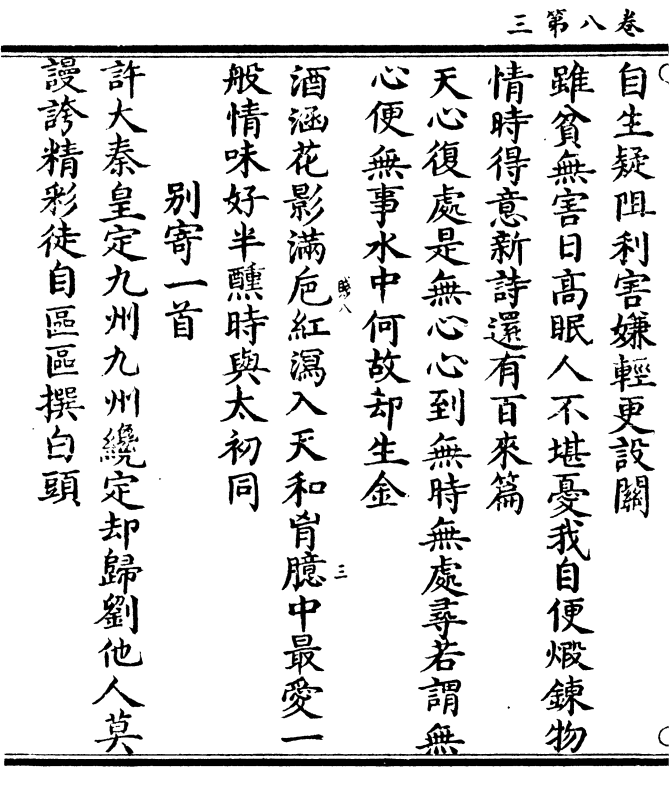 三第八卷
自生疑阻利害嫌輕更設關
雖貧無害日高眠人不堪憂我自便煅鍊物
情時得意新詩還有百來篇
天心復處是無心心到無時無處尋若謂無
心便無事水中何故却生金
酒涵花影滿卮紅瀉入天和胷臆中最愛一
般情味好半醺時與太初同
別寄一首
許大秦皇定九州九州纔定却歸劉他人莫
謾誇精彩徒自區區撰白頭
八
三